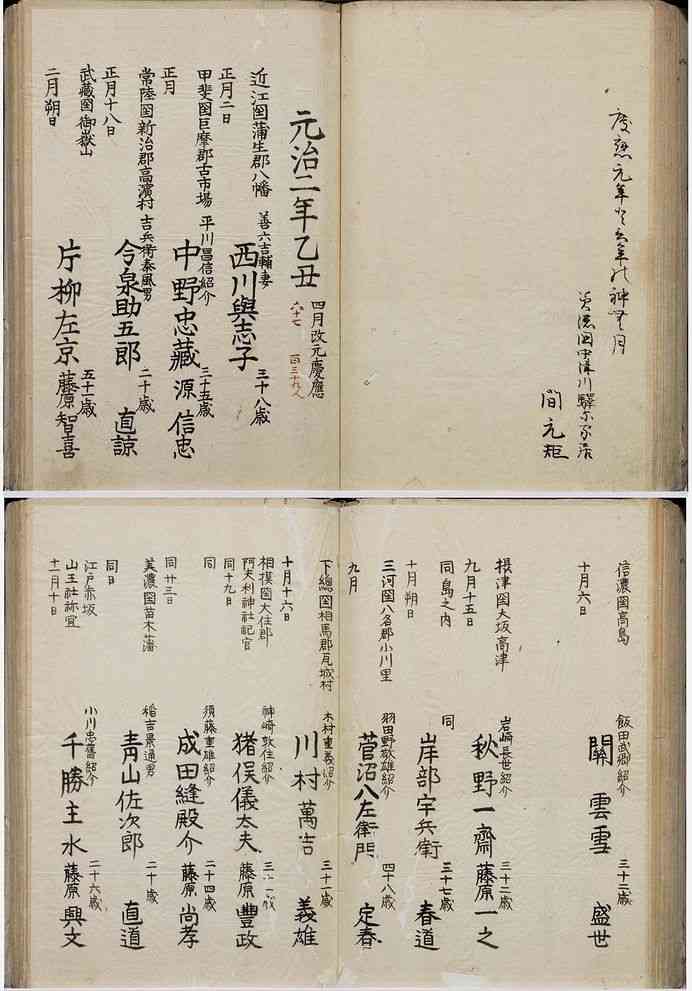 慶應元年
間元矩
元治二年乙丑
四月改元慶應
六十七
百三十九人
近江国蒲生郡八幡
善六吉輔妻
西川與志子
三十八歳
正月二日
甲斐国巨摩郡古市場
平川昌信紹介
中野忠藏
三十五歳
源信忠
正月
常陸国新治郡高濱村
吉兵衛泰風男
今泉助五郎
二十歳
直諒
正月十八日
武藏国御嶽山
片柳左京
五十一歳
藤原智喜
二月朔日
信濃国高島
飯田武郷紹介
關雲雪
三十二歳
盛世
十月六日
摂津国大坂高津
岩崎長世紹介
秋野一齋
三十二歳
藤原一之
九月十五日
同島之内
同
岸部宇兵衛
三十七歳
春道
十月朔日
三河国八名郡小川里
羽田野敬雄紹介
菅沼八左衛門
四十八歳
定春
九月
下總国相馬郡瓦城村
木村重義紹介
川村萬吉
三十一歳
義雄
十月十六日
相摸国大住郡
阿夫利神社祀官
神崎敦住紹介
猪俣儀太夫
藤原豊政
同十九日
同
須藤重雄紹介
成田縫殿介
二十四歳
藤原尚孝
同廿三日
美濃国苗木藩
稲吉景通男
青山佐次郎
二十歳
直道
同日
江戸赤坂
山王社祢宜
小川忠舊紹介
千勝主水
二十六歳
藤原興文
十一月十日